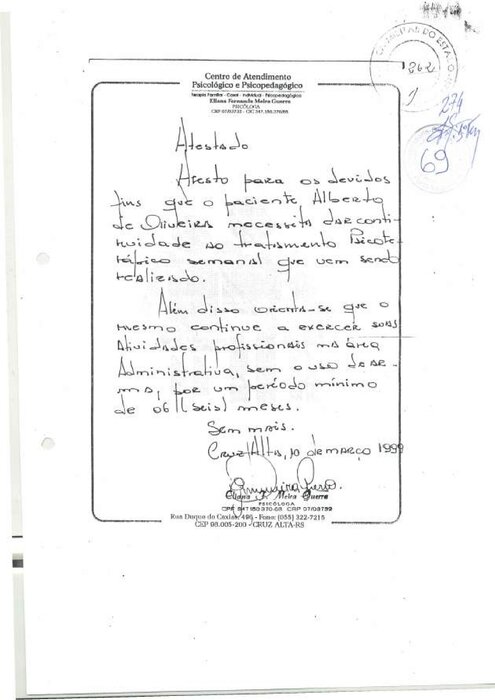 Centro de Atendimento
Psicológico e Psicopedagógico
Terapia Familia - Casal - Individual - Psicopedagógica
Eliana Fernanda Meira Guerra
PSICÓLOGA
Atestado
Atesto para os devidos
fins que o paciente Alberto
de Oliveira necessita dar conti-
nuidade ao tratamento Psicote-
rápico semanal que vem sendo
realizado.
Além disso orienta-se que o
mesmo continue a exercer suas
atividades profissionais na área
Administrativa, sem o uso de ar-
ma, por um período mínimo
de 06 (seis) meses.
Sem mais.
Cruz Alta, 10 de março 1999
Eliana F. Meira Guerra
PSICÓLOGA
Rua Duque de Caxias, 495 - Fone: (055) 322-7215
CEP 98.005-200 - CRUZ ALTA-RS
362
274
69